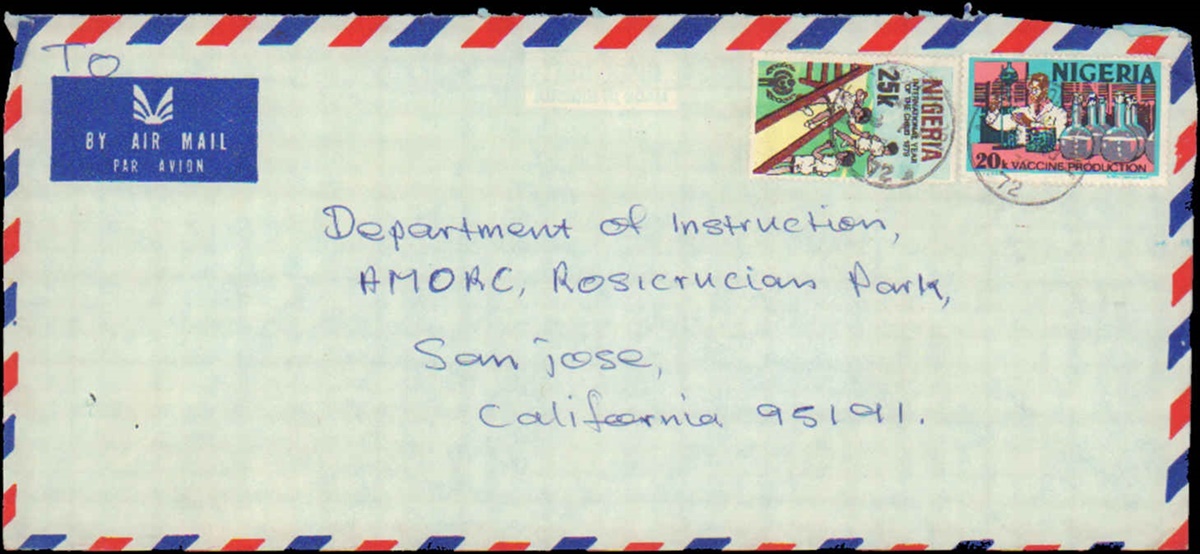 TO
BY AIR MAIL
PAR AVION
NIGERIA
INTERNATIONAL YEAR
OF THE CHILD 1979
25k
NIGERIA
20k VACCINE PRODUCTION
72
72
Department of Instruction,
AMORC, Rosicrucian Park,
San jose,
California 95191.